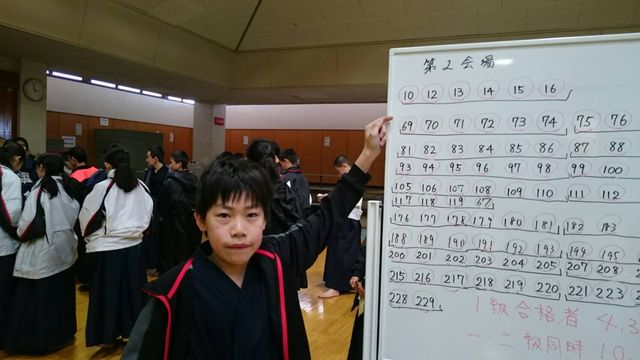 第2会場
10 12 13 14 15 16
69 70 71 72 73 74 75 76
81 82 83 84 85 86 87 88
93 94 95 96 97 98 99 100
105 106 107 108 109 110 111 112
117 118 119 67
176 177 178 179 180 181 182 183
188 189 190 191 192 193 194 195
200 201 202 203 204 205 207 208
215 216 217 218 219 220 221 223
228 229
1級合格者 4.3
一.二級同時 10